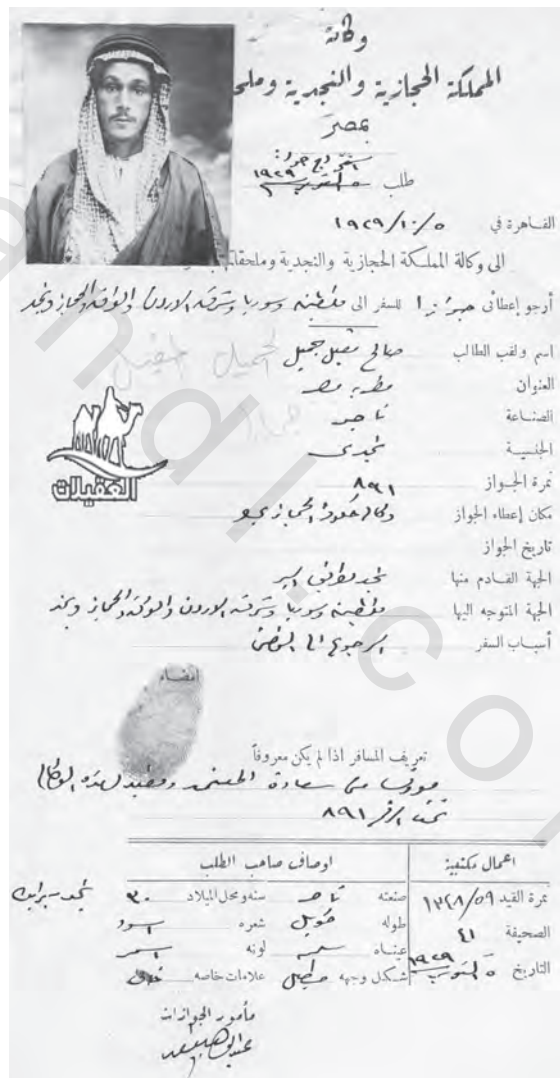 وكالة
المملكة الحجازية والنجدية وملحقا
بمصر
طلب
القاهرة في ١٩٢٩/١٠/٥
الى وكالة المملكة الحجازية والنجدية وملحقاتها
أرجو إعطائي جوازا للسفر الى فلسطين وسوريا وشرق الاردن والعراق والحجاز ونجد
اسم ولقب الطالب صالح مقبل جميل
العنوان مصر
الصناعة تاجر
الجنسية نجدى
نمرة الجواز ٨٩١
مكان إعطاء الجواز
تاريخ الجواز
الجهة القادم منها نجد بطريق البر
الجهة المتوجه اليها فلسطين وسوريا وشرق الاردن والعراق والحجاز ونجد
أسباب السفر الرجوع الى الوطن
العقيلات
امضاء
تعريف المسافر اذا لم يكن معروفاً
من سعادة المعتمد ومقيد لهذه الوكالة
تحت ٨٩١
اعمال مكتبية اوصاف صاحب الطلب
نمرة القيد ١٣٤٨/٥٩ صنعته تاجر سنه ومحل الميلاد ٣٠ نجد
الصحيفة ٤١ طوله طويل شعره اسود
التاريخ ١٩٢٩ عيناه لونه اسمر
شكل وجهه علامات خاصه
مأمور الجوازات